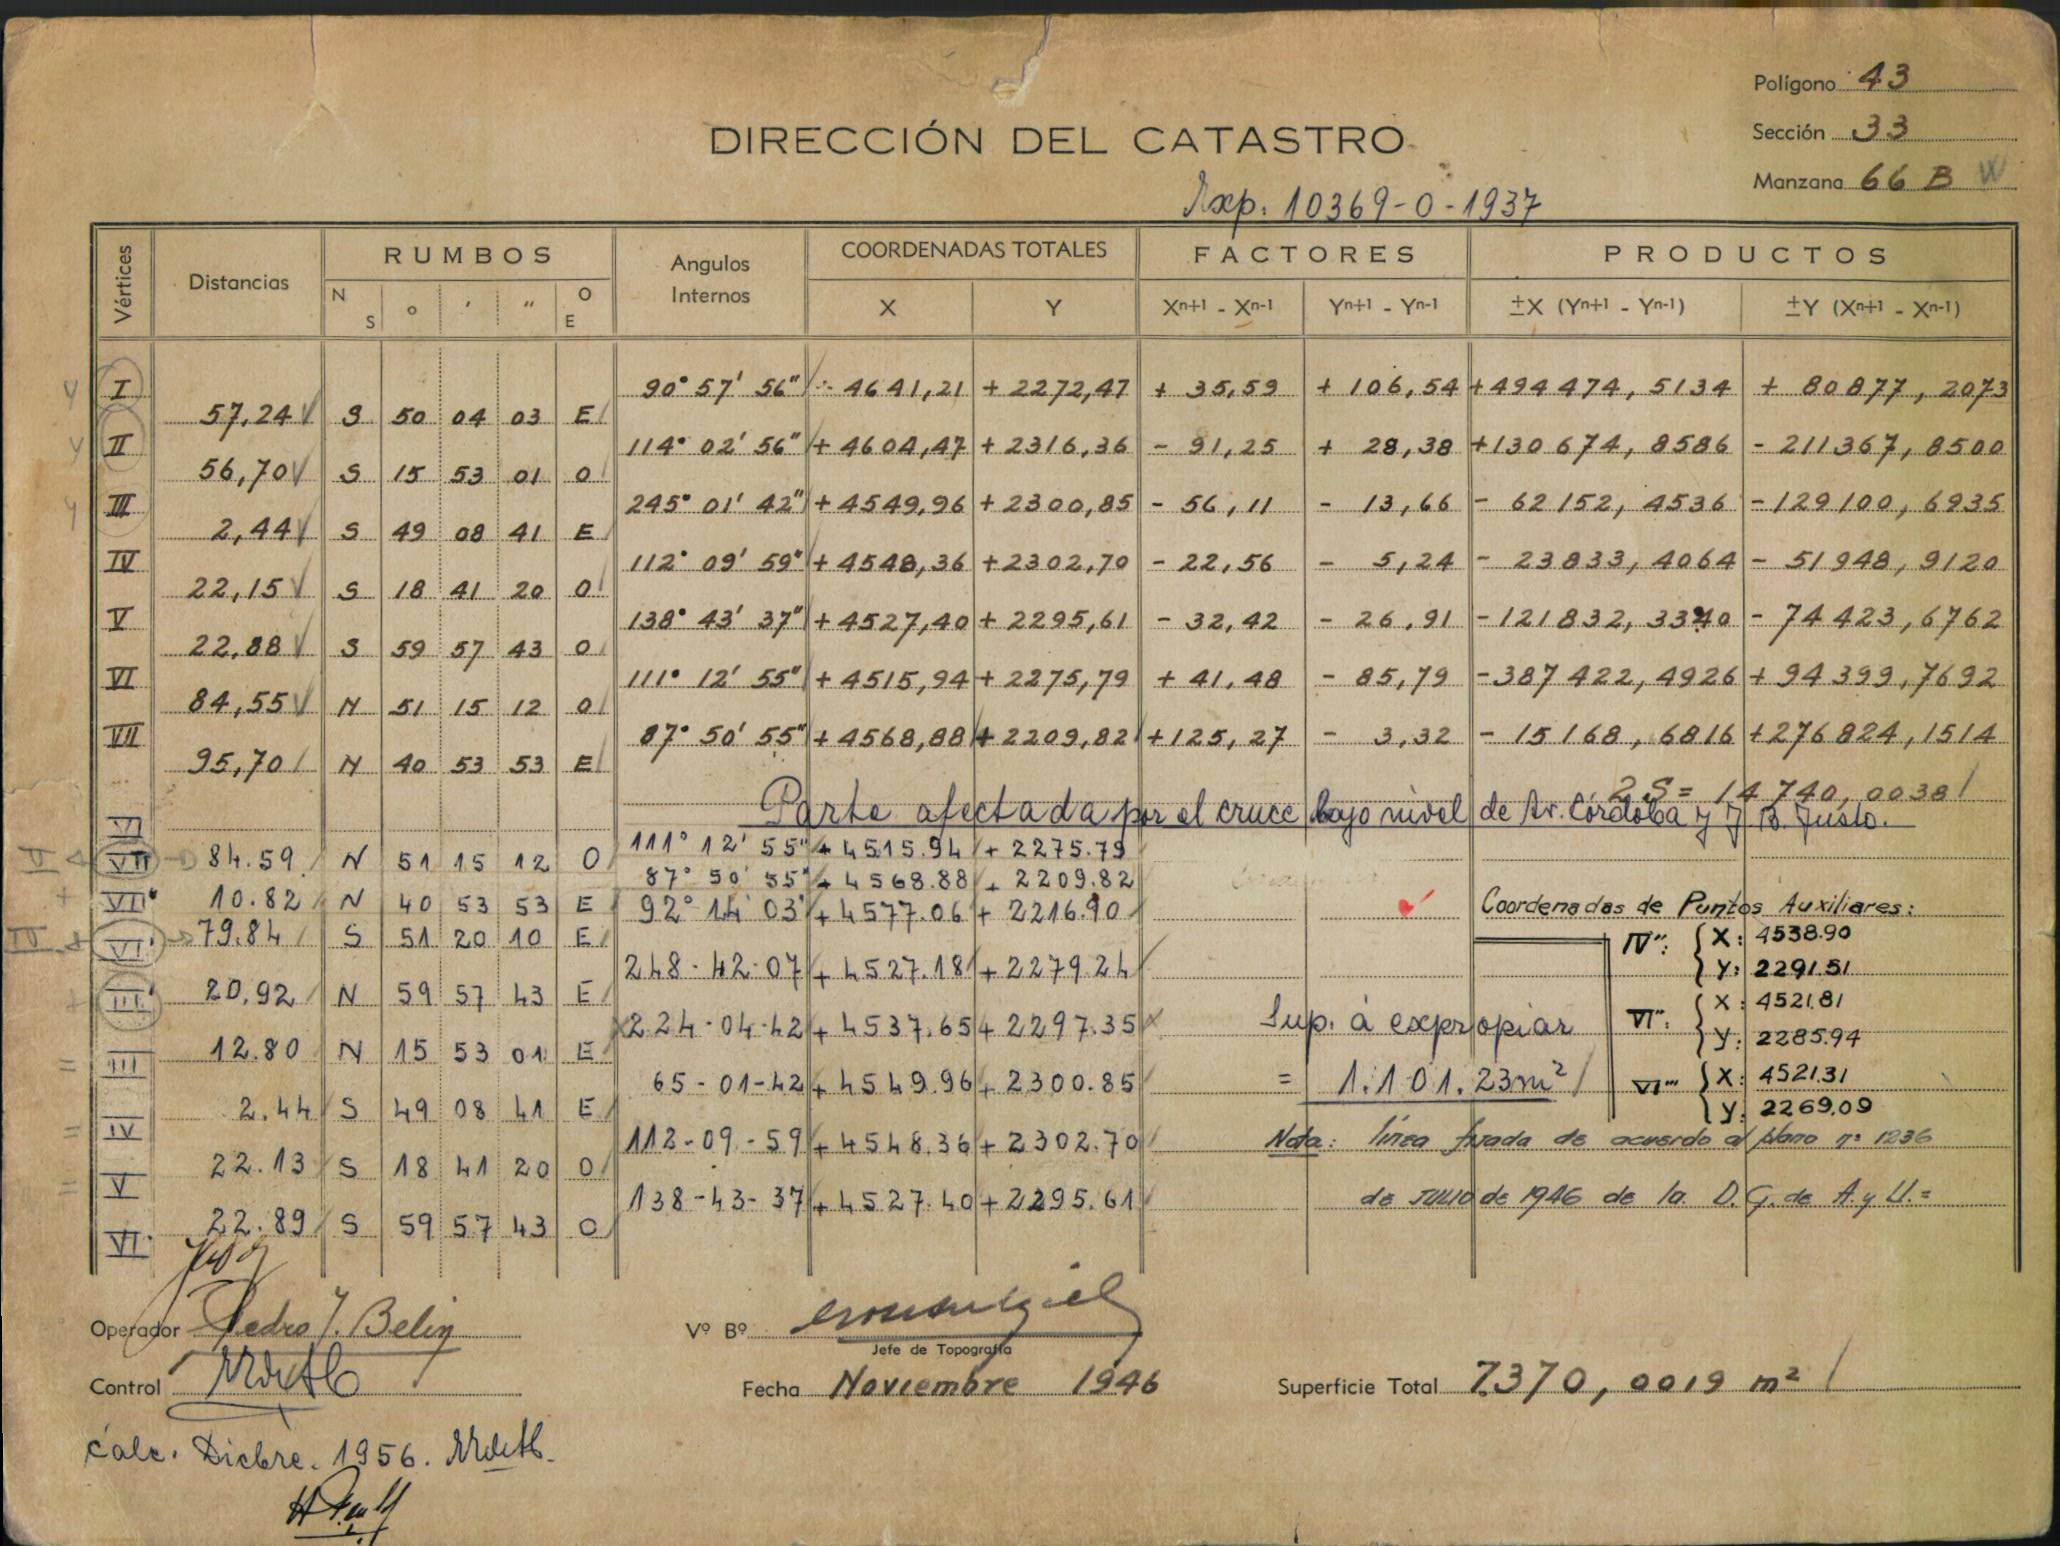 Polígono 43
DIRECCIÓN DEL CATASTRO
Sección 33
Manzana 66 B W
Exp. 10369-0-1937
Vértices Distancias RUMBOS Angulos Internos COORDENADAS TOTALES FACTORES PRODUCTOS
N S ° ' " O E X Y Xn+1 - Xn-1 Yn+1 - Yn-1 ±X (Yn+1 - Yn-1) ±Y (Xn+1 - Xn-1)
I 90° 57' 56" + 4641,21 + 2272,47 + 35,59 + 106,54 +494474,5134 + 80877,2073
57,24 S 50 04 03 E
II 114° 02' 56" + 4604,47 + 2316,36 - 91,25 + 28,38 +130674,8586 - 211367,8500
56,70 S 15 53 01 O
III 245° 01' 42" + 4549,96 + 2300,85 - 56,11 - 13,66 - 62152,4536 - 129100,6935
2,44 S 49 08 41 E
IV 112° 09' 59" + 4548,36 + 2302,70 - 22,56 - 5,24 - 23833,4064 - 51948,9120
22,15 S 18 41 20 O
V 138° 43' 37" + 4527,40 + 2295,61 - 32,42 - 26,91 - 121832,3340 - 74423,6762
22,88 S 59 57 43 O
VI 111° 12' 55" + 4515,94 + 2275,79 + 41,48 - 85,79 - 387422,4926 + 94399,7692
84,55 N 51 15 12 O
VII 87° 50' 55" + 4568,88 + 2209,82 + 125,27 - 3,32 - 15168,6816 + 276824,1514
95,70 N 40 53 53 E
2S = 14740,0038
Parte afectada por el cruce bajo nivel de Av. Córdoba y J. B. Justo.
VI 111° 12' 55" + 4515.94 + 2275.79
84.59 N 51 15 12 O
VII 87° 50' 55" + 4568.88 + 2209.82
10.82 N 40 53 53 E
VII' 92° 14' 03" + 4577.06 + 2216.90
79.84 S 51 20 10 E
VI' 248-42-07 + 4527.18 + 2279.24
20.92 N 59 57 43 E
III' 224-04-42 + 4537.65 + 2297.35
12.80 N 15 53 01 E
III 65-01-42 + 4549.96 + 2300.85
2.44 S 49 08 41 E
IV 112-09-59 + 4548.36 + 2302.70
22.13 S 18 41 20 O
V 138-43-37 + 4527.40 + 2295.61
22.89 S 59 57 43 O
VI
Coordenadas de Puntos Auxiliares:
IV": X: 4538.90
Y: 2291.51
VI": X: 4521.81
Y: 2285.94
VI"': X: 4521.31
Y: 2269.09
Sup. á expropiar
= 1.101.23 m²
Nota: línea fijada de acuerdo al plano nº 1236
de JULIO de 1946 de la D. G. de A. y U.=
Operador Pedro J. Belin
Vº Bº
Jefe de Topografía
Control
Fecha Noviembre 1946
Superficie Total 7370,0019 m²
Calc. Dicbre. 1956.